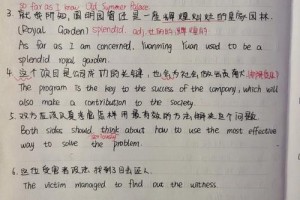 so far as I know Old Summer Palace
3. 就我所知,圆明园曾经是一座辉煌的皇家园林.
(Royal Garden) splendid. adj.
As far as I am concerned, Yuanming Yuan used to be a
splendid royal garden.
4. 这个项目是公司成功的关键,也会为社会做出贡献
The program is the key to the success of the company, which will
also make a contribution to the society.
5. 双方应该认真考虑怎样用最有效的方法解决这个问题
Both sides should think about how to use the most effective
way to solve the problem.
6. 这位受害者设法找到了目击证人.
The victim managed to find out the witness.